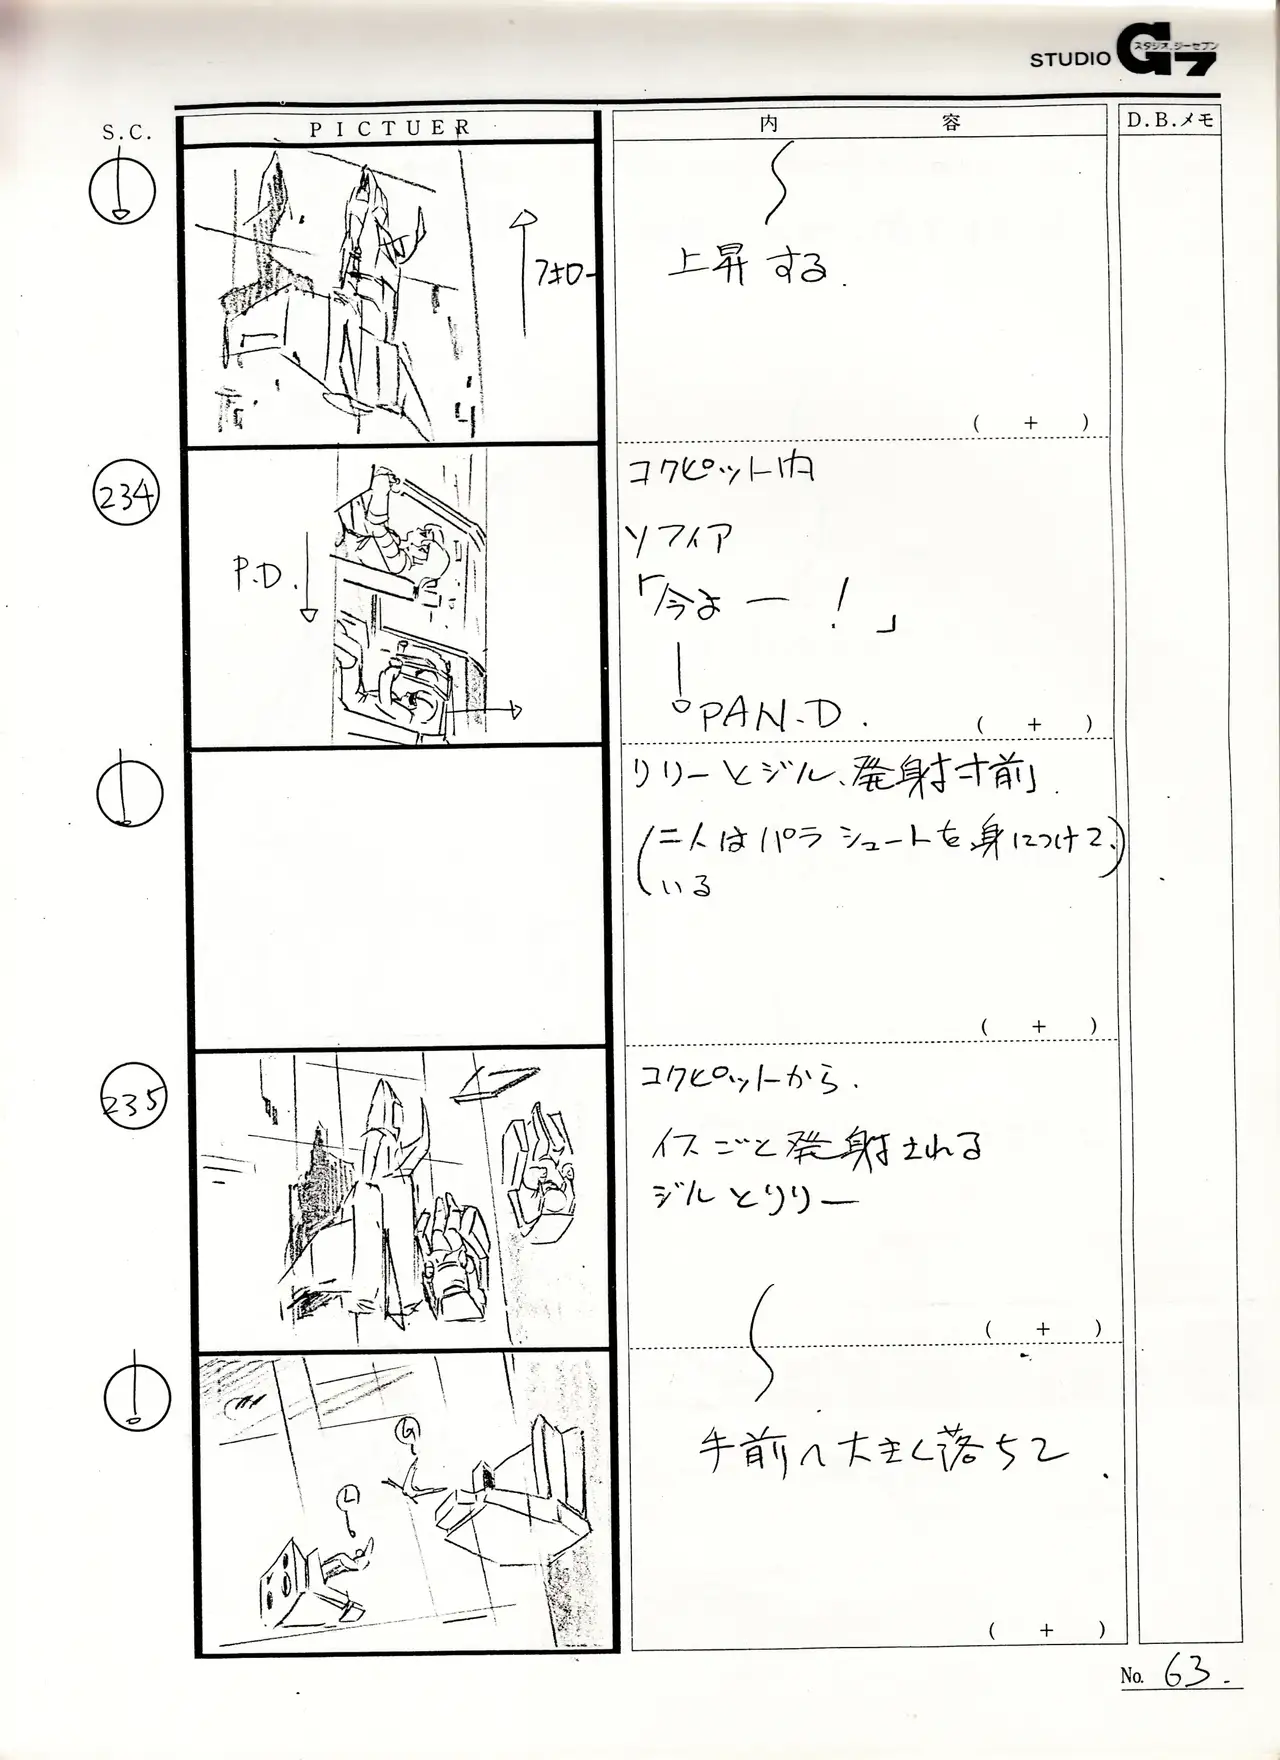 STUDIO G7
スタジオ.ジーセブン
S.C.
PICTUER
内 容
D.B.メモ
フォロー
上昇する.
( + )
234
P.D.
コクピット内
ソフィア
「今よー!」
PAN.D.
( + )
リリーとジル、発射寸前」.
(二人はパラシュートを身につけて、
いる)
( + )
235
コクピットから.
イスごと発射される
ジルとリリー
( + )
G
L
手前へ大きく落ちて.
( + )
No. 63.